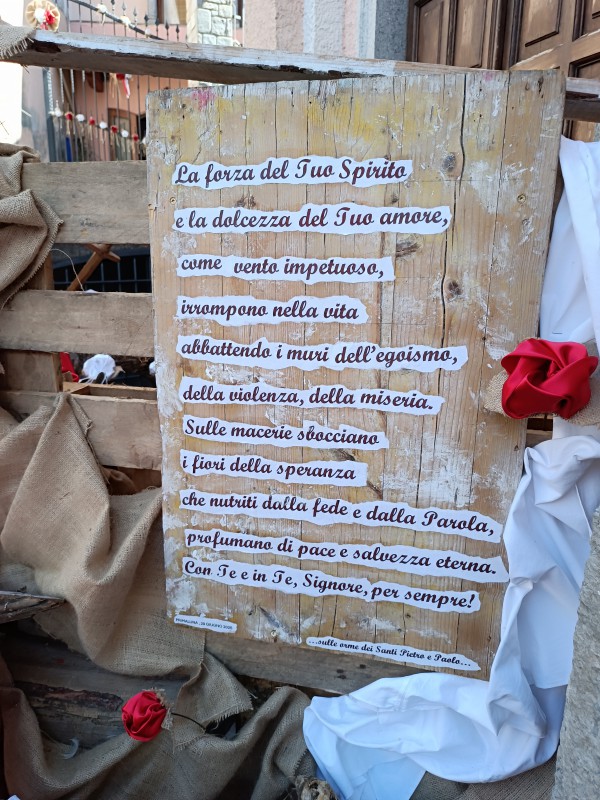 La forza del Tuo Spirito
e la dolcezza del Tuo amore,
come vento impetuoso,
irrompono nella vita
abbattendo i muri dell'egoismo,
della violenza, della miseria.
Sulle macerie sbocciano
i fiori della speranza
che nutriti dalla fede e dalla Parola,
profumano di pace e salvezza eterna.
Con Te e in Te, Signore, per sempre!
...sulle orme dei Santi Pietro e Paolo...